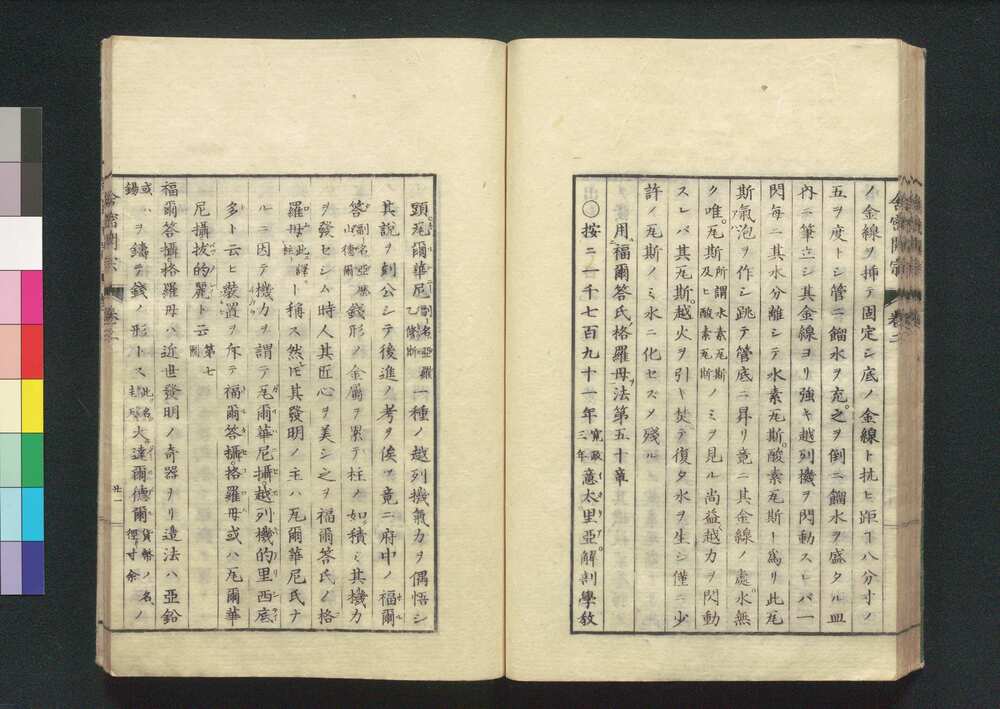 ノ金線ヲ挿テ固定シ底ノ金線ト抗ヒ距ヿ八分寸ノ
五ヲ度トシ管ニ餾水ヲ充之ヲ倒ニ餾水ヲ盛タル皿
内ニ筆立シ其金線ヨリ強キ越列機ヲ閃動スレバ一
閃毎ニ其水分離シテ水素瓦斯酸素瓦斯ト為リ此瓦
斯氣泡ヲ作シ跳テ管底ニ昇リ竟ニ其金線ノ處水無
ク唯瓦斯所謂水素瓦斯及ヒ酸素瓦斯ノミヲ見ル尚益越力ヲ閃動
スレバ其瓦斯越火ヲ引キ焚テ復タ水ヲ生シ僅ニ少
許ノ瓦斯ノミ水ニ化セスメ殘ル
用福爾答氏格羅母法第五十章
○按ニ一千七百九十一年寛政三年意太里亞解剖學教
頭瓦爾華尼副名亞羅乙修斯一種ノ越列機氣力ヲ偶悟シ
其說ヲ刻公シテ後進ノ考ヲ俟ツ竟ニ府中ノ福爾
答副名亞歴山德爾錢形ノ金屬ヲ累テ柱ノ如積ミ其機力
ヲ發セシム時人其匠心ヲ美シ之ヲ福爾答氏ノ格
羅母此釋柱ト稱ス然𪜈其發明ノ主ハ瓦爾華尼氏ナ
ルニ因テ機力ヲ謂テ瓦爾華尼攝越列機的里西底
多ト云ヒ裝置ヲ斥テ福爾答攝格羅母或ハ瓦爾華
尼攝拔的麗ト云第七圖
福爾答攝格羅母ハ近世發明ノ奇器ヲリ造法ハ亞鉛
或ハ錫ヲ鑄テ錢ノ形トス此名大達爾德爾貨幣ノ名徑寸余ノ
舎密開宗
卷二
廿一